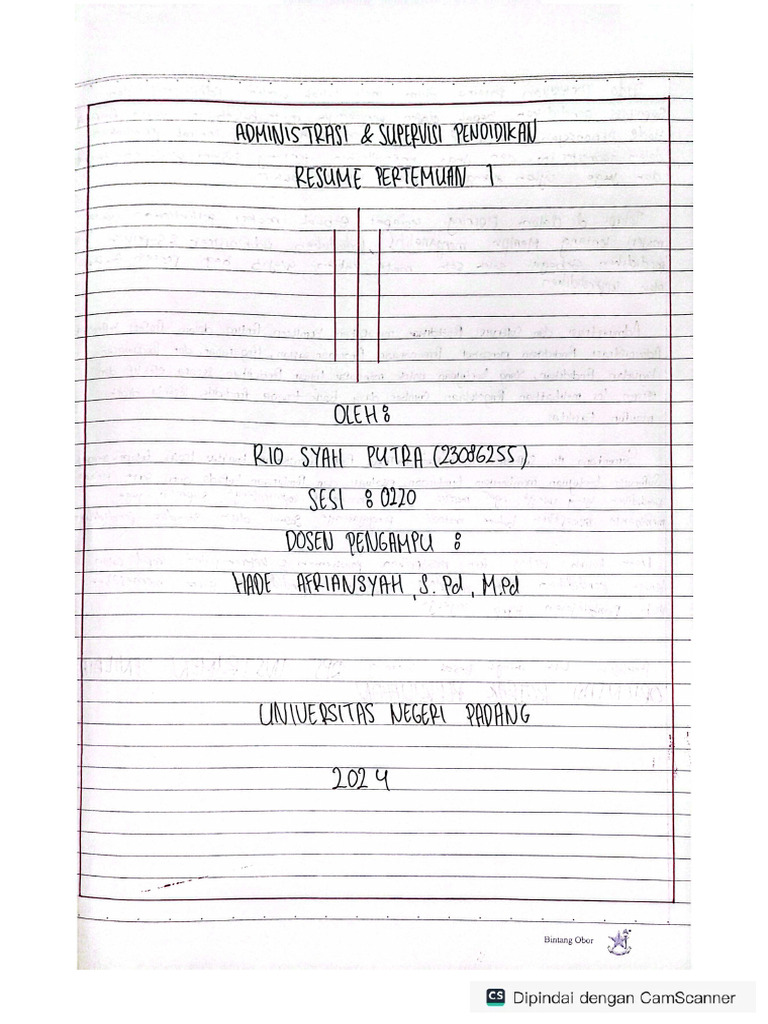 ADMINISTRASI & SUPERVISI PENDIDIKAN
RESUME PERTEMUAN 1
OLEH :
RIO SYAH PUTRA (23086255)
SESI : 0220
DOSEN PENGAMPU :
HADE AFRIANSYAH, S. Pd, M.Pd
UNIVERSITAS NEGERI PADANG
2024
Bintang Obor
CS Dipindai dengan CamScanner